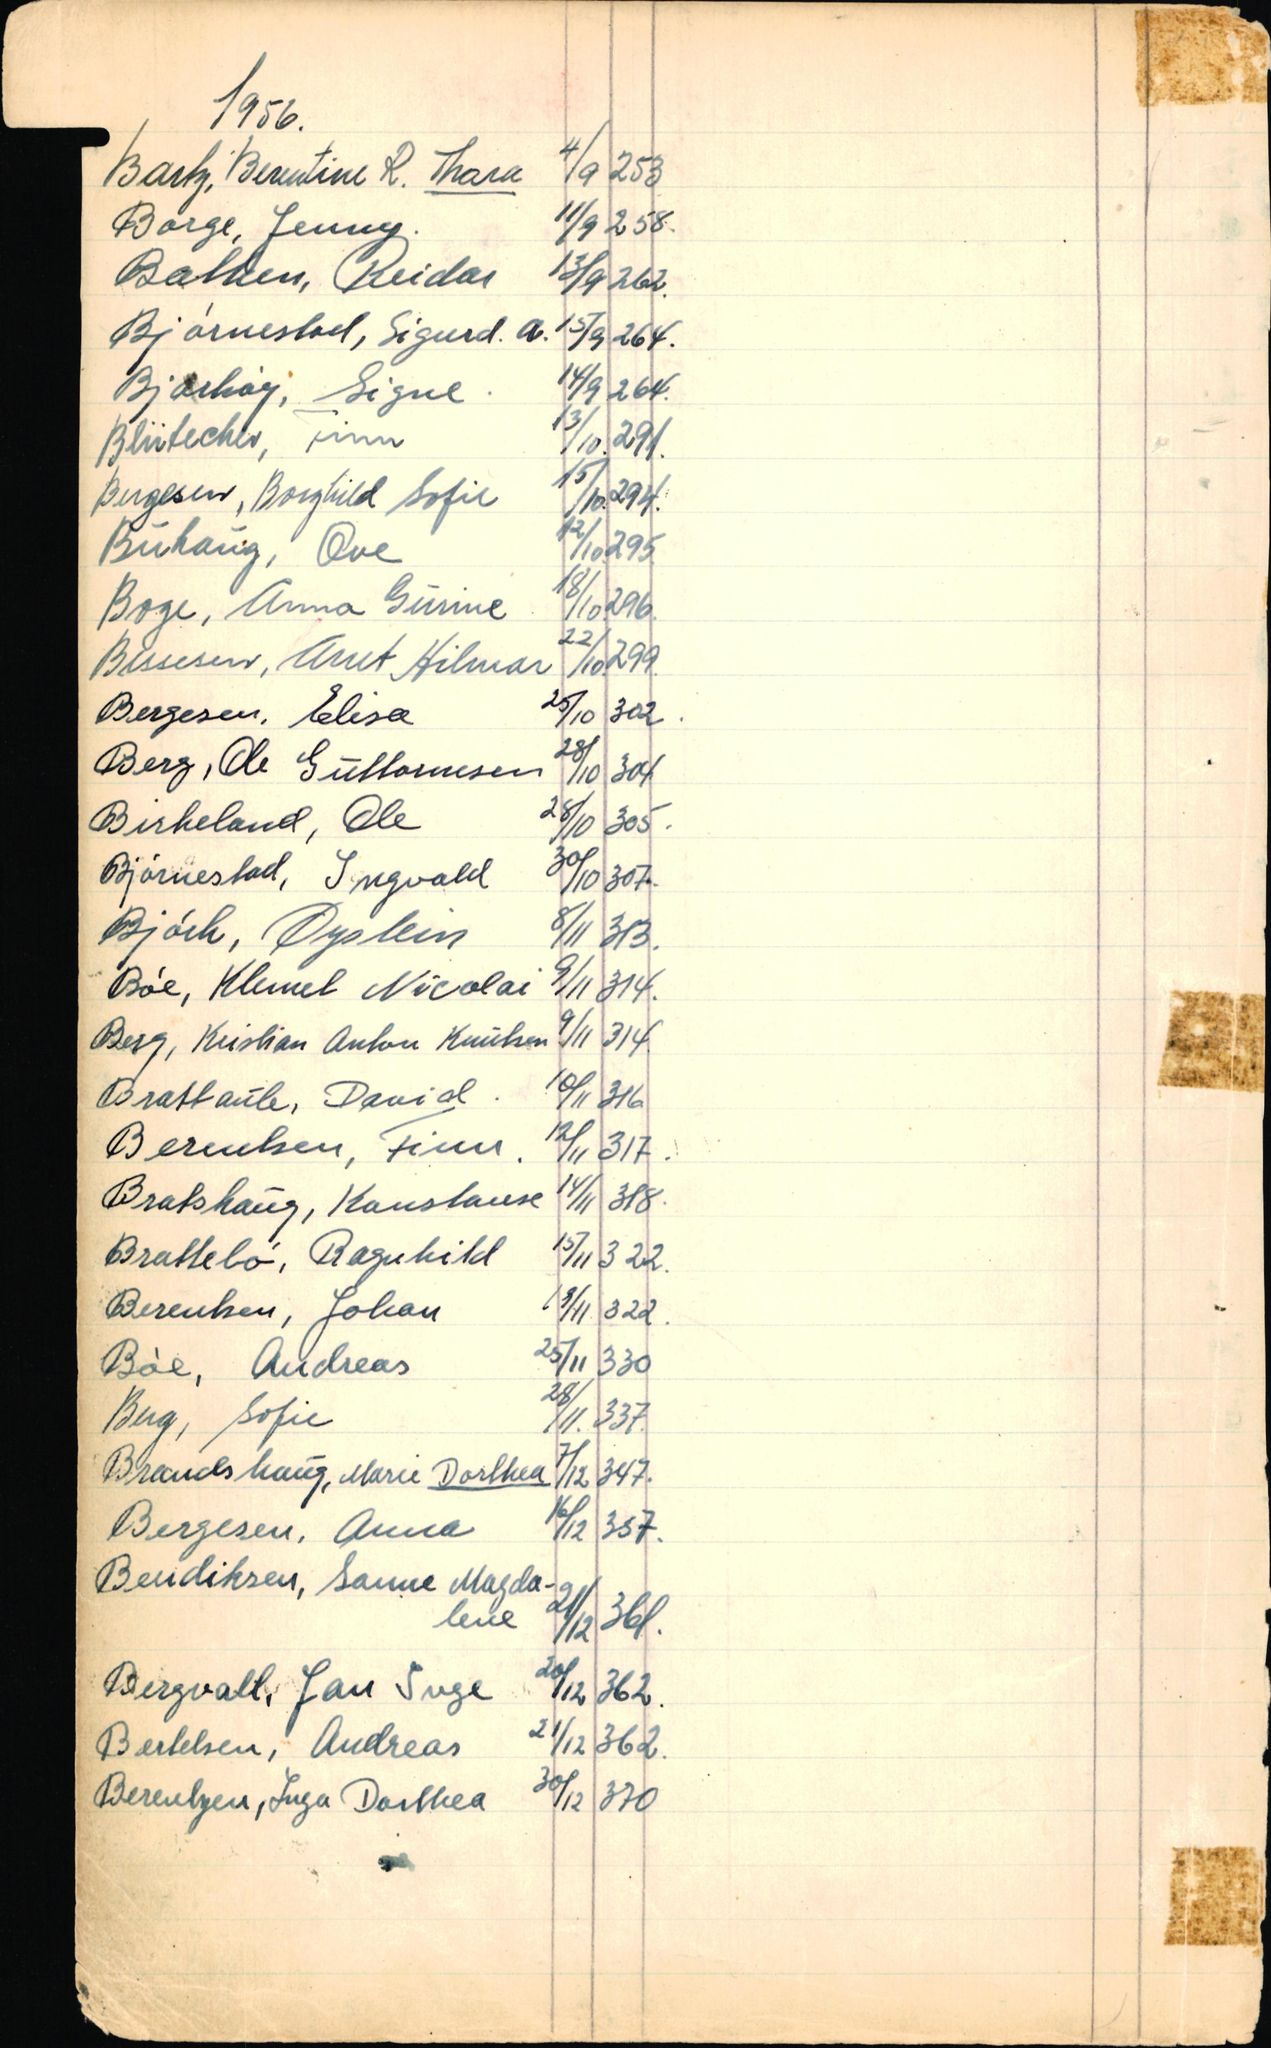 1956.
Bartz, Berentine R. Thara 4/9 253
Borge, Jenny. 11/9 258.
Bakken, Reidar 13/9 262.
Bjórnestad, Sigurd. A. 15/9 264.
Signe. 14/9 264.
Blütecher, Finn 13/10. 291.
Bergesen, Borghild Sofie 15/10. 294.
Buhaug, Ove 12/10. 295.
Boge, Anna Gurine 18/10. 296.
Bessesen, Hilmar 22/10. 299.
Bergesen, Elisa 25/10 302.
Berg, Ole Guttormsen 28/10 304
Birkeland, Ole 28/10 305.
Bjórnestad, Ingvald 30/10 307.
Bjórk, Øystein 8/11 313.
Bóe, Klemet Nicolai 9/11 314.
Berg, Kristian Anton Knutsen 9/11 314.
Brattaule, David. 10/11 316
Berentsen, Finn. 12/11 317.
Bratshaug, Konstanse 14/11 318.
Brattebó, Ragnhild 15/11 322.
Berentsen, Johan 19/11. 322.
Bóe, Andreas 25/11 330
Berg, Sofie 28/11. 337.
Brandshaug, Marie Dorthea 7/12 347.
Bergesen, Anna 16/12 357.
Bendiksen, Sanne Magda-
lene 21/12 361.
Bergvall, Jan Inge 20/12 362.
Bertelsen, Andreas 21/12 362.
Berentzen, Inga Dorthea 30/12 370